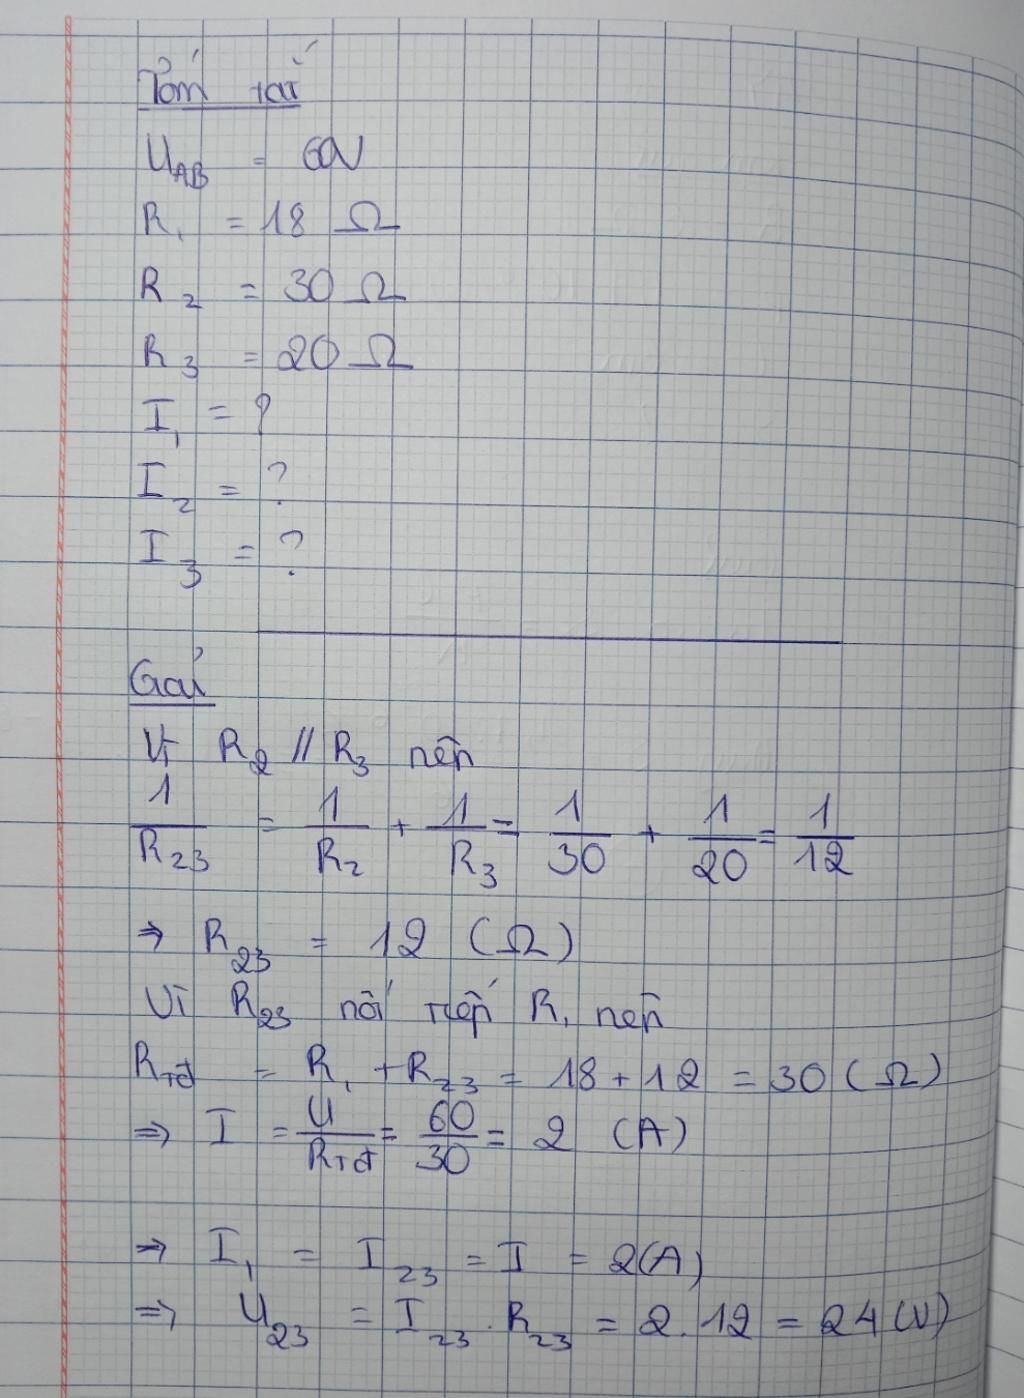 Tóm tắt
U_AB = 60V
R₁ = 18 Ω
R₂ = 30 Ω
R₃ = 20 Ω
I₁ = ?
I₂ = ?
I₃ = ?
Giải
Vì R₂ // R₃ nên
1/R₂₃ = 1/R₂ + 1/R₃ = 1/30 + 1/20 = 1/12
⇒ R₂₃ = 12 (Ω)
Vì R₂₃ nối tiếp R₁ nên
R_Tđ = R₁ + R₂₃ = 18 + 12 = 30 (Ω)
⇒ I = U/R_Tđ = 60/30 = 2 (A)
⇒ I₁ = I₂₃ = I = 2(A)
⇒ U₂₃ = I₂₃ . R₂₃ = 2.12 = 24 (V)